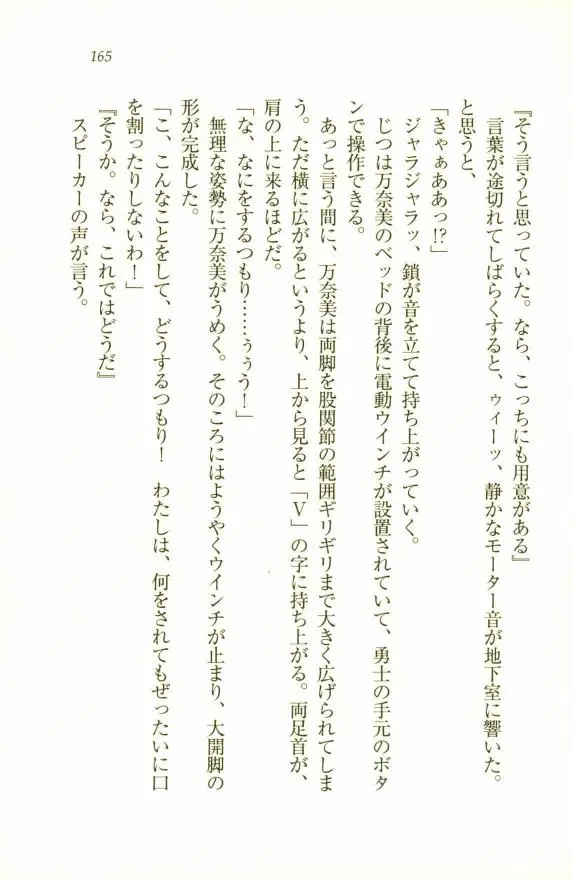 165
『そう言うと思っていた。なら、こっちにも用意がある』
言葉が途切れてしばらくすると、ゥィーッ、静かなモーター音が地下室に響いた。
と思うと、
「きゃぁああっ!?」
ジャラジャラッ、鎖が音を立てて持ち上がっていく。
じつは万奈美のベッドの背後に電動ウインチが設置されていて、勇士の手元のボタ
ンで操作できる。
あっと言う間に、万奈美は両脚を股関節の範囲ギリギリまで大きく広げられてしま
う。ただ横に広がるというより、上から見ると「Ｖ」の字に持ち上がる。両足首が、
肩の上に来るほどだ。
「な、なにをするつもり……ぅぅう！」
無理な姿勢に万奈美がうめく。そのころにはようやくウインチが止まり、大開脚の
形が完成した。
「こ、こんなことをして、どうするつもり！　わたしは、何をされてもぜったいに口
を割ったりしないわ！」
『そうか。なら、これではどうだ』
スピーカーの声が言う。